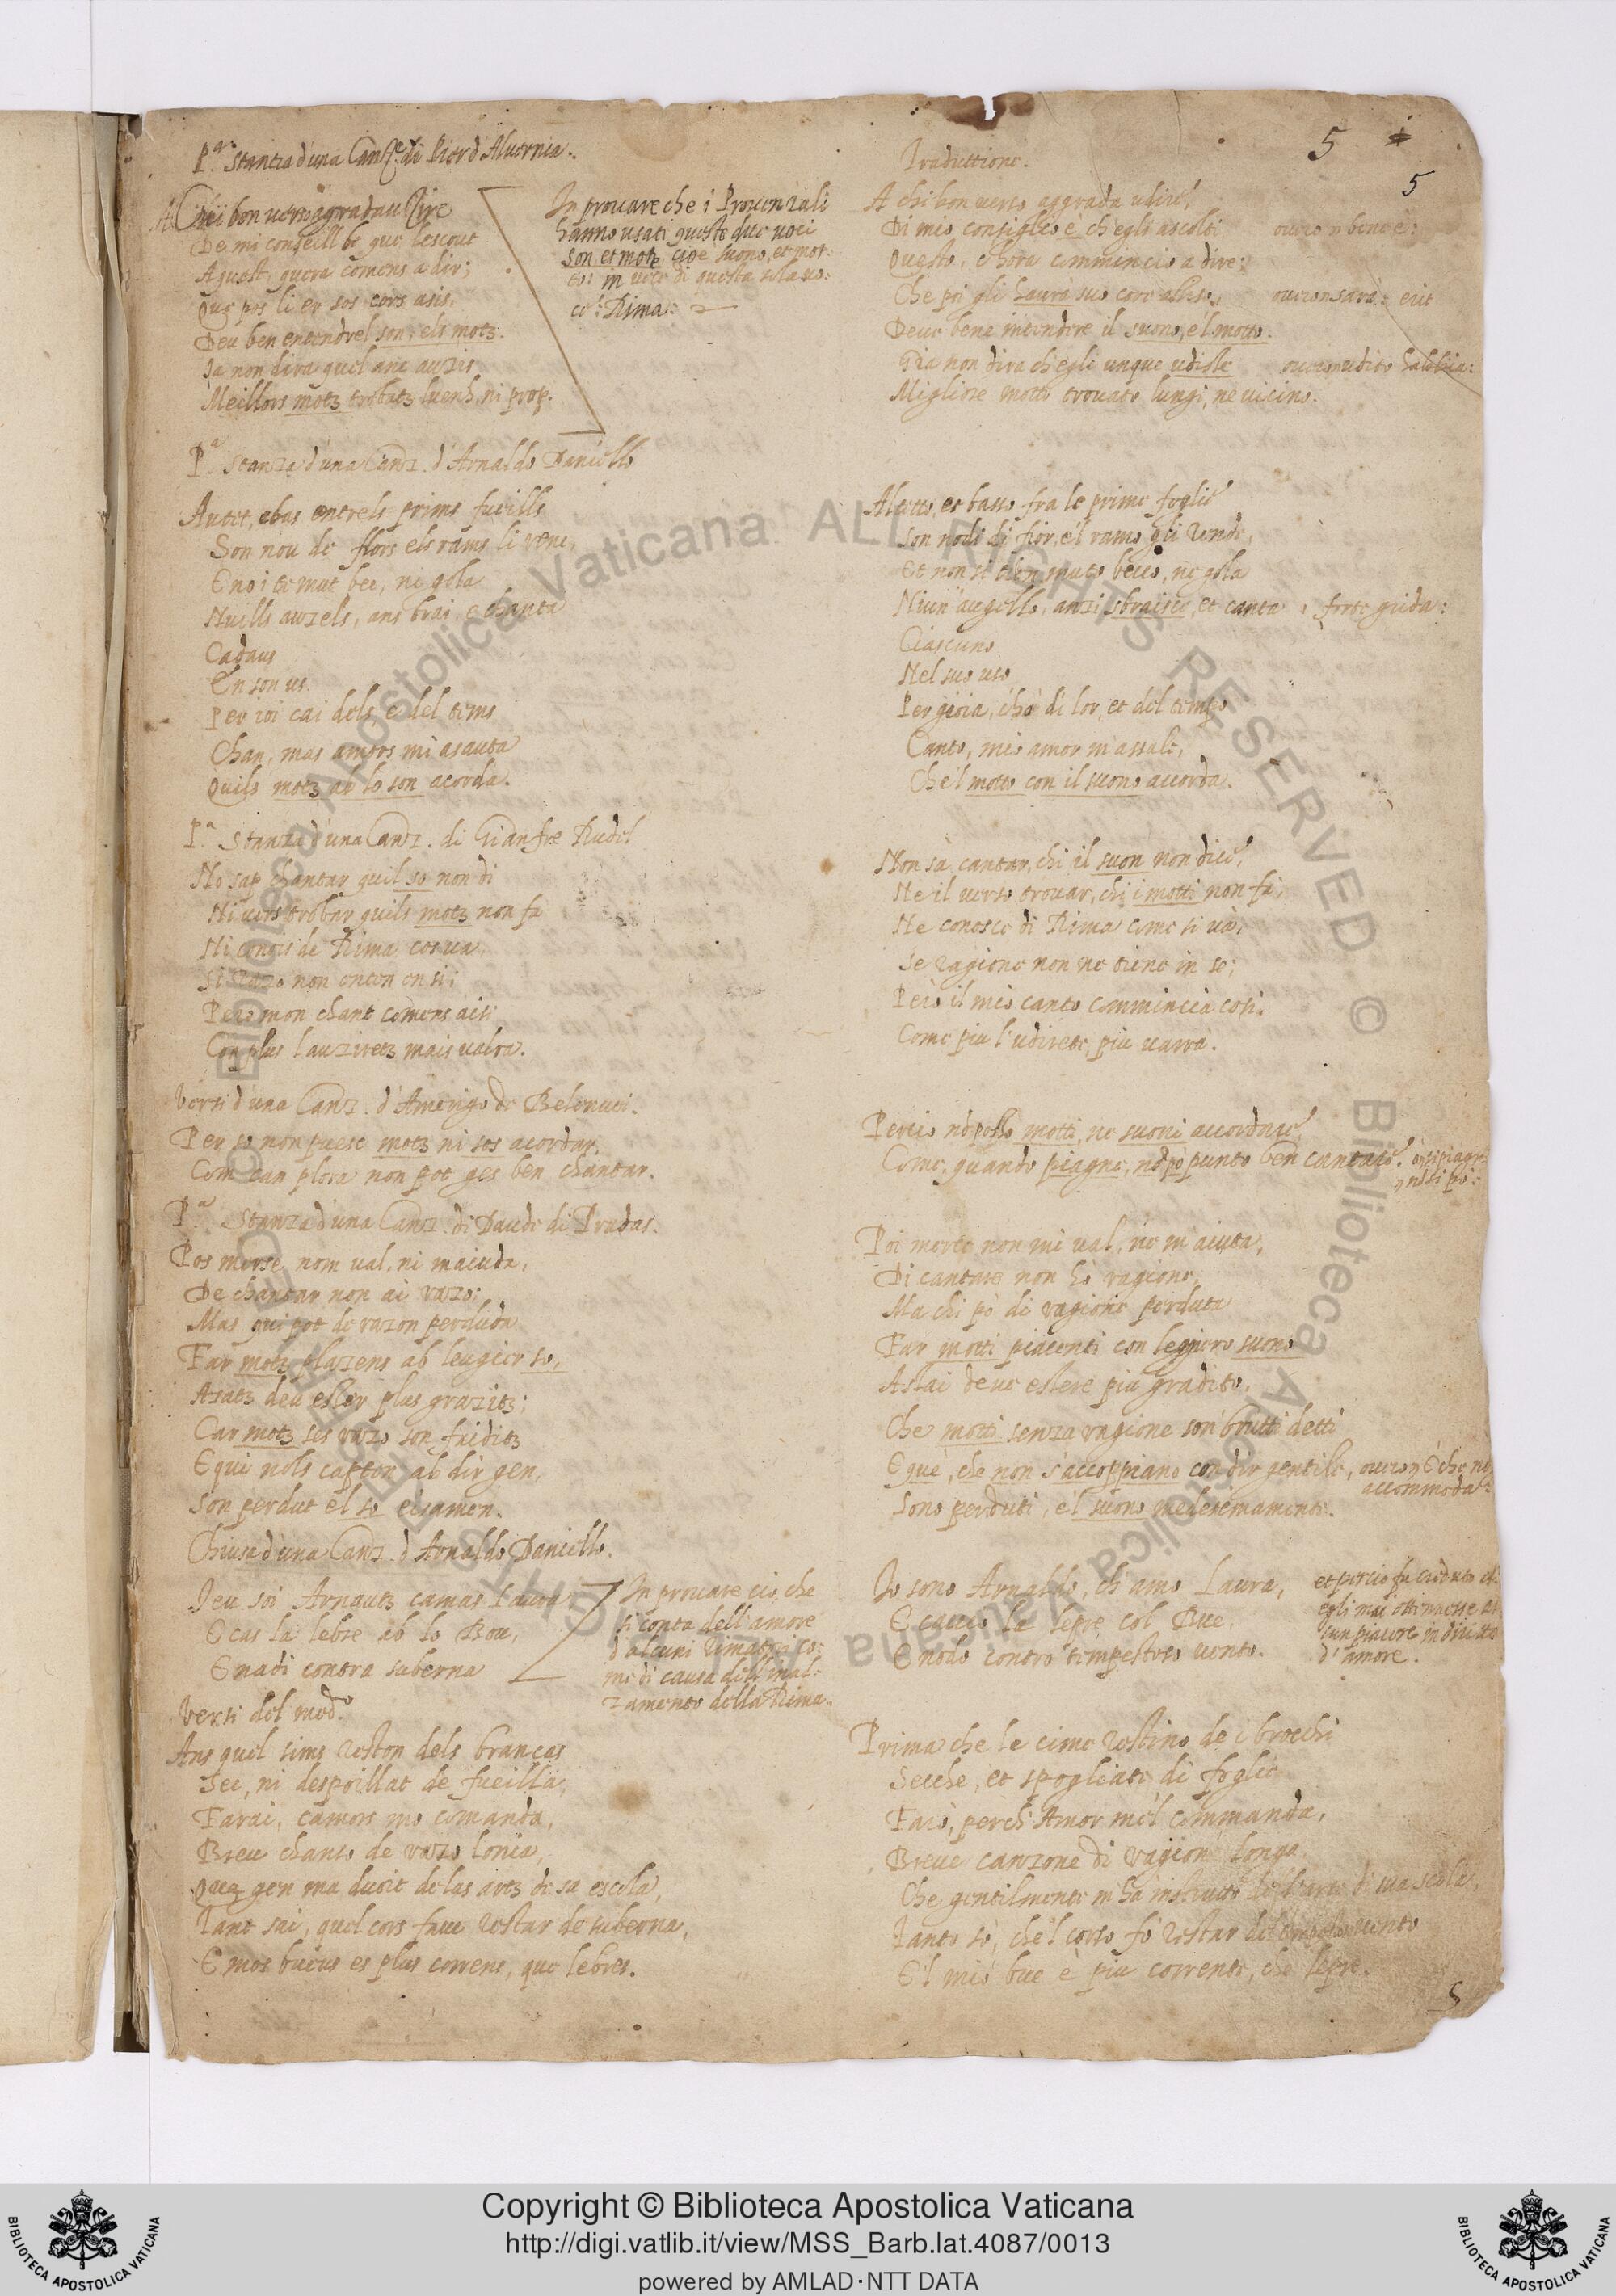 P.ª Stanza d'una Canz.e di Pier d'Alvernia.
A Chi bon uers aggrada uzire
De mi conseill be que l'escout
Aquest, quera comens a dir;
Que pos li er sos cors asis,
Deu ben entendrel son, els motz.
Ia non dira quel anc auzis
Meillors motz trobatz luenh, ni prop.
In prouare che i Prouenzali
hanno usati queste due uoci
Son et motz cioè suono, et mot-
to: in uece di questa sola uo-
ce: Rima:
P.ª Stanza d'una Canz. d'Arnaldo Daniello
Autet, e bas entrels prims fueills
Son nou de flors els rams li renc,
E no i te mut bec, ni gola
Nuills auzels, ans brai, e chanta
Cadaus
En son us.
Per ioi cai dels e del tems
Chan, mas amors mi asauta
Quils motz ab lo son acorda.
P.ª Stanza d'una Canz. di Gianfre Rudel
No sap chantar quil so non di
Ni uers trobar quils motz non fa
Ni conois de Rima cos ua,
Si razo non enten en si;
Pero mon chant comens aisi
Con plus l'auziretz mais ualra.
Versi d'una Canz. d'Amerigo de Belenuei.
Per so non puesc motz ni sos acordar,
Com can plora non pot ges ben chantar.
P.ª Stanza d'una Canz. di Daude di Pradas.
Pos merse nom ual, ni maiuda,
De chantar non ai razo;
Mas qui pot de razon perduda
Far motz plazens ab leugier so,
Asatz deu esser plus grazitz;
Car motz ses razo son fuiditz
E qui nols capten ab dir gen,
Son perdut el so eisamen.
Chiusa d'una Canz. d'Arnaldo Daniello.
Ieu soi Arnautz camas Laura
E cas la lebre ab lo Bou,
E nadi contra suberna
In prouare ciò, che
si conta dell'amore
d'alcuni Rimatori co-
me di causa dell'inal-
zamento della Rima.
Versi del med.º
Ans quel sims reston dels brancas
Sec, ni despoillat de fueilla,
Farai, camors mo comanda,
Breu chanso de razo lonia,
Quea gen ma duoit de las artz de sa escola,
Tant sai, quel cors fauc restar de suberna,
E mos bueus es plus correns, que lebres.
Traduttione.
5
5
A chi bon uerso aggrada udire,
Di mio consiglio è ch'egli ascolti
Questo, c'hora commincio a dire;
Che poi gli haurà suo core assiso,
Deue bene intendere il suono, e'l motto.
Gia non dira ch'egli unque udisse
Migliore motto trouato lungi, ne uicino.
ouero bene è:
ouero sarà: erit
ouero udito habbia:
Aletto, et basso fra le prime foglie
Son noui di fior, e'l ramo gli rende,
Et non si tien muto becco, ne gola
Niun augello, anzi sbraisce, et canta
forte grida:
Ciascuno
Nel suo uso
Per gioia, c'hò di lor, et del tempo
Canto, mio amor m'assale,
Che'l motto con il suono accorda.
Non sà cantar, chi il suon non dice,
Ne il uerso trouar, chi i motti non fà,
Ne conosce di Rima come si uà,
Se ragione non ne tiene in se;
Però il mio canto commincia così.
Come piu l'udirete, più uarra.
Perciò nõ posso motti, ne suoni accordare,
Come, quando piagne, nõ pò punto ben cantare.
Poi merce non mi ual, ne m'aiuta,
Di cantare non hò ragione,
Ma chi pò di ragione perduta
Far motti piacenti con leggiero suono
Assai deue essere più gradito.
Che motti senza ragione son brutti detti
E que, che non s'accoppiano con dir gentile,
Sono perduti, e'l suono medesemamente.
accommoda:
Io sono Arnaldo, ch'amo Laura,
E caccio la lepre col Bue,
E noto contro tempestoso uento.
et perciò fu creduto che
egli mai ottenesse al-
cun piacere in diritto
d'amore.
Prima che le cime restino de i brocchi
Secche, et spogliate di foglie
Farò, perch'Amor me'l commanda,
Breue canzone di ragion longa,
Che gentilmente m'ha instrutto dell'arte di sua scola,
Tanto sò, che'l corso fò restar del tempestoso uento
E'l mio bue è più corrente, che lepre.
5
© Biblioteca Apostolica Vaticana ALL RIGHTS RESERVED
Copyright © Biblioteca Apostolica Vaticana
http://digi.vatlib.it/view/MSS_Barb.lat.4087/0013
powered by AMLAD·NTT DATA
BIBLIOTECA APOSTOLICA VATICANA
BIBLIOTECA APOSTOLICA VATICANA